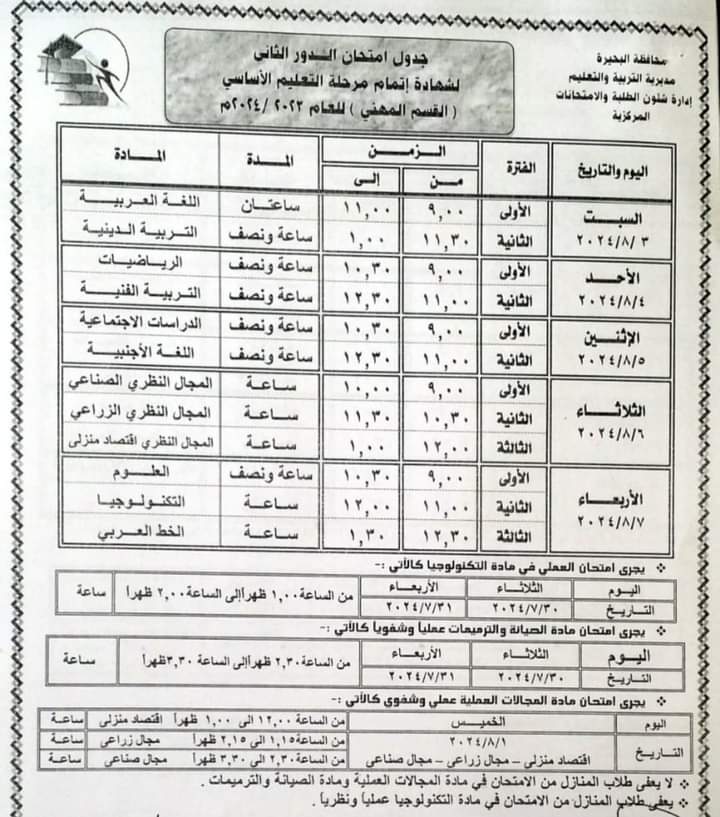 محافظة البحيرة
مديرية التربية والتعليم
إدارة شئون الطلبة والامتحانات
المركزية
جدول امتحان الدور الثانى
لشهادة إتمام مرحلة التعليم الأساسي
( القسم المهني ) للعام ٢٠٢٣ /٢٠٢٤م
اليوم والتاريخ الفترة الزمن المدة المادة
من إلى
السبت ٢٠٢٤/٨/٣
الأولى ٩,٠٠ ١١,٠٠ ساعتان اللغة العربية
الثانية ١١,٣٠ ١,٠٠ ساعة ونصف التربية الدينية
الأحد ٢٠٢٤/٨/٤
الأولى ٩,٠٠ ١٠,٣٠ ساعة ونصف الرياضيات
الثانية ١١,٠٠ ١٢,٣٠ ساعة ونصف التربية الفنية
الإثنين ٢٠٢٤/٨/٥
الأولى ٩,٠٠ ١٠,٣٠ ساعة ونصف الدراسات الاجتماعية
الثانية ١١,٠٠ ١٢,٣٠ ساعة ونصف اللغة الأجنبية
الثلاثاء ٢٠٢٤/٨/٦
الأولى ٩,٠٠ ١٠,٠٠ ساعة المجال النظري الصناعي
الثانية ١٠,٣٠ ١١,٣٠ ساعة المجال النظري الزراعي
الثالثة ١٢,٠٠ ١,٠٠ ساعة المجال النظري اقتصاد منزلى
الأربعاء ٢٠٢٤/٨/٧
الأولى ٩,٠٠ ١٠,٣٠ ساعة ونصف العلوم
الثانية ١١,٠٠ ١٢,٠٠ ساعة التكنولوجيا
الثالثة ١٢,٣٠ ١,٣٠ ساعة الخط العربي
❖ يجرى امتحان العملي في مادة التكنولوجيا كالآتي :-
اليوم الثلاثاء الأربعاء من الساعة ١,٠٠ ظهراً إلى الساعة ٢,٠٠ ظهراً ساعة
التاريخ ٢٠٢٤/٧/٣٠ ٢٠٢٤/٧/٣١
❖ يجرى امتحان مادة الصيانة والترميمات عملياً وشفوياً كالآتي :-
اليوم الثلاثاء الأربعاء من الساعة ٢,٣٠ ظهراً إلى الساعة ٣,٣٠ ظهراً ساعة
التاريخ ٢٠٢٤/٧/٣٠ ٢٠٢٤/٧/٣١
❖ يجرى امتحان مادة المجالات العملية عملى وشفوي كالآتي :-
اليوم الخميس من الساعة ١٢,٠٠ الى ١,٠٠ ظهراً اقتصاد منزلى ساعة
التاريخ ٢٠٢٤/٨/١ من الساعة ١,١٥ الى ٢,١٥ ظهراً مجال زراعى ساعة
اقتصاد منزلى – مجال زراعى – مجال صناعى من الساعة ٢,٣٠ الى ٣,٣٠ ظهراً مجال صناعى ساعة
❖ لا يعفى طلاب المنازل من الامتحان في مادة المجالات العملية ومادة الصيانة والترميمات .
❖ يعفى طلاب المنازل من الامتحان في مادة التكنولوجيا عملياً ونظرياً .